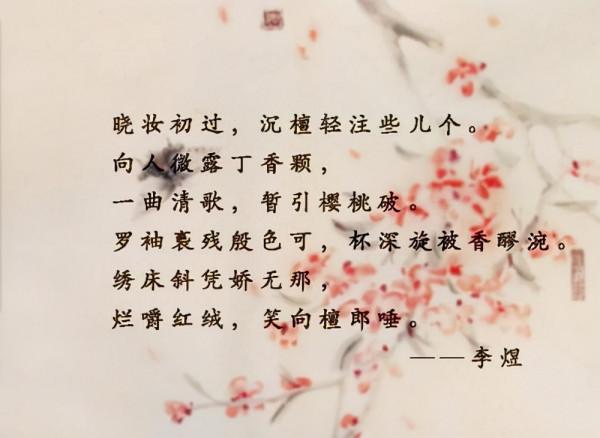 晓妆初过，沉檀轻注些儿个。
向人微露丁香颗，
一曲清歌，暂引樱桃破。
罗袖裛残殷色可，杯深旋被香醪涴。
绣床斜凭娇无那，
烂嚼红绒，笑向檀郎唾。
——李煜